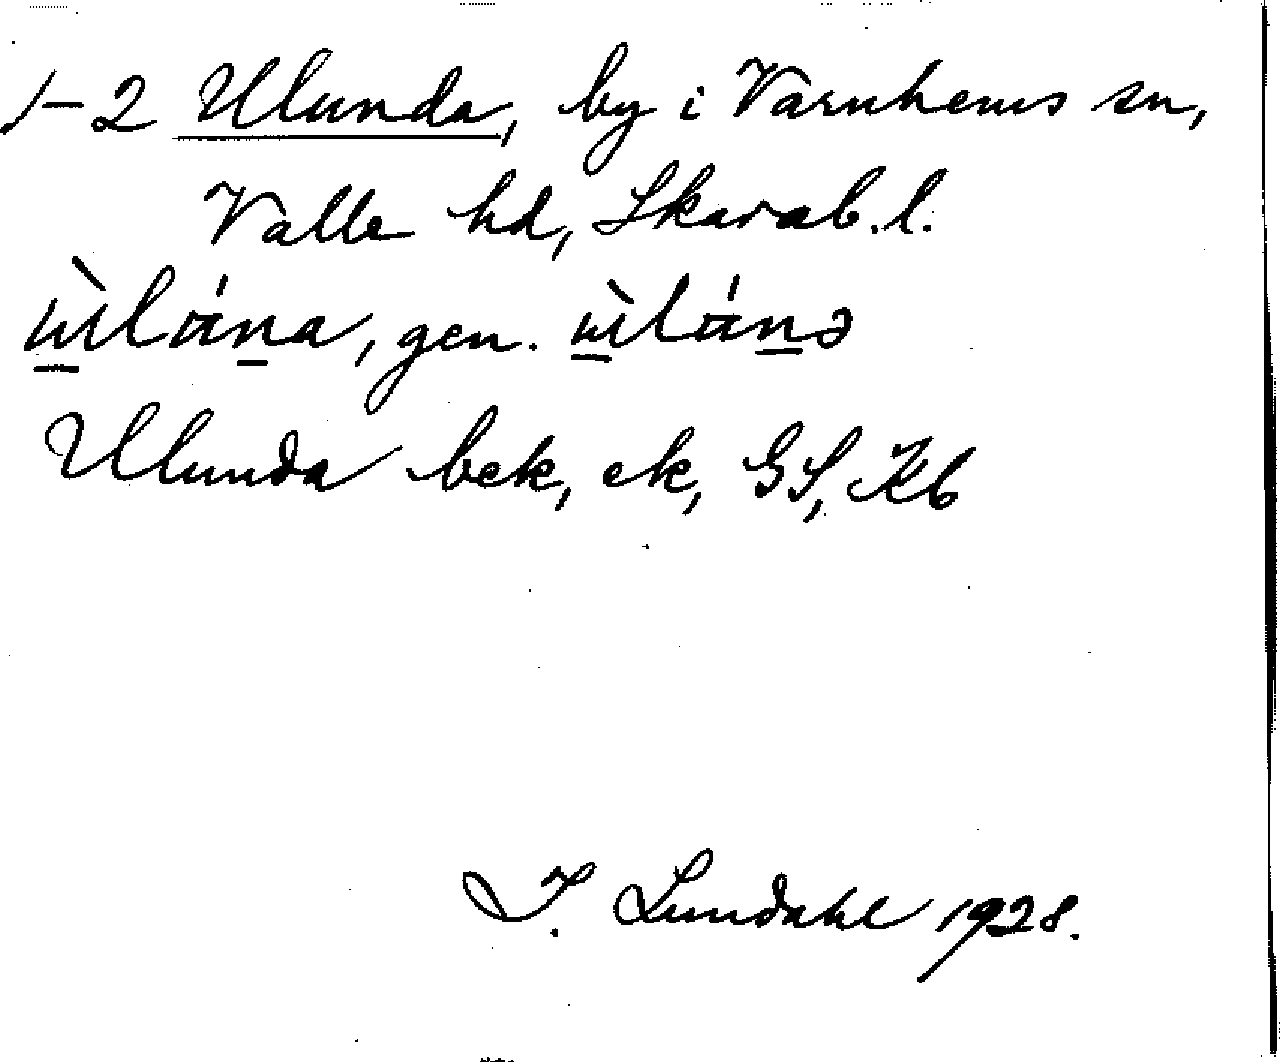 1-2 Ulunda, by i Varnhems sn,
Valle hd, Skarab.l.
gen.
Ulunda bek, ek, GS, Kb
I. Lundahl 1928.